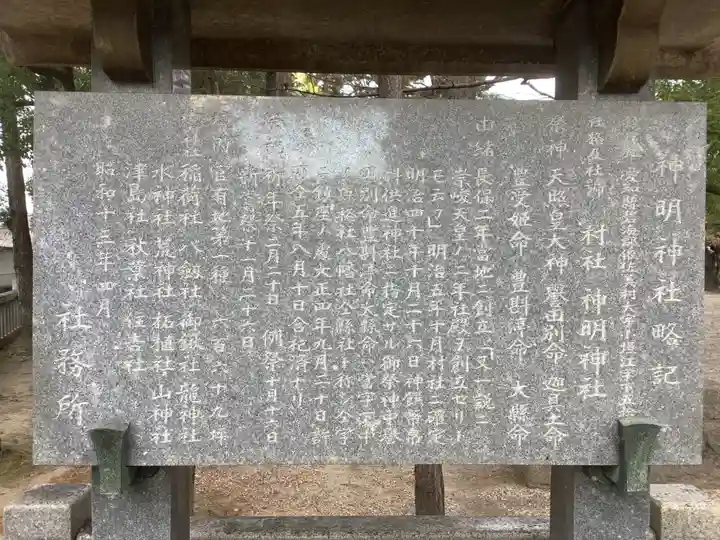 神明神社略記
社格及社號 村社 神明神社
祭神 天照皇大神 譽田別命 迦具土命
豊受姫命 豊斟渟命 大縣命
由緒 長保二年當地ニ創立「又一説ニ
崇峻天皇ノ二年社殿ヲ創立セリト
モ云フ」明治五年十月村社ニ確定
明治四十年十月二十六日神饌幣帛
料供進神社ニ指定サル御祭神中譽
田別命豊斟渟命大縣命ハ當字
八幡社 縣社ト称シ仝字
ニ鎮座ノ處大正四年九月二十日許
仝五年八月十日合祀済ナリ
祈年祭三月二十日 例祭十月十六日
新嘗祭十一月二十六日
官有地第一種 六百六十九坪
稲荷社 八劔社 御鍬社 龍神社
水神社 荒神社 柘植社 山神社
津島社 秋葉社 住吉社
昭和十三年四月
社務所